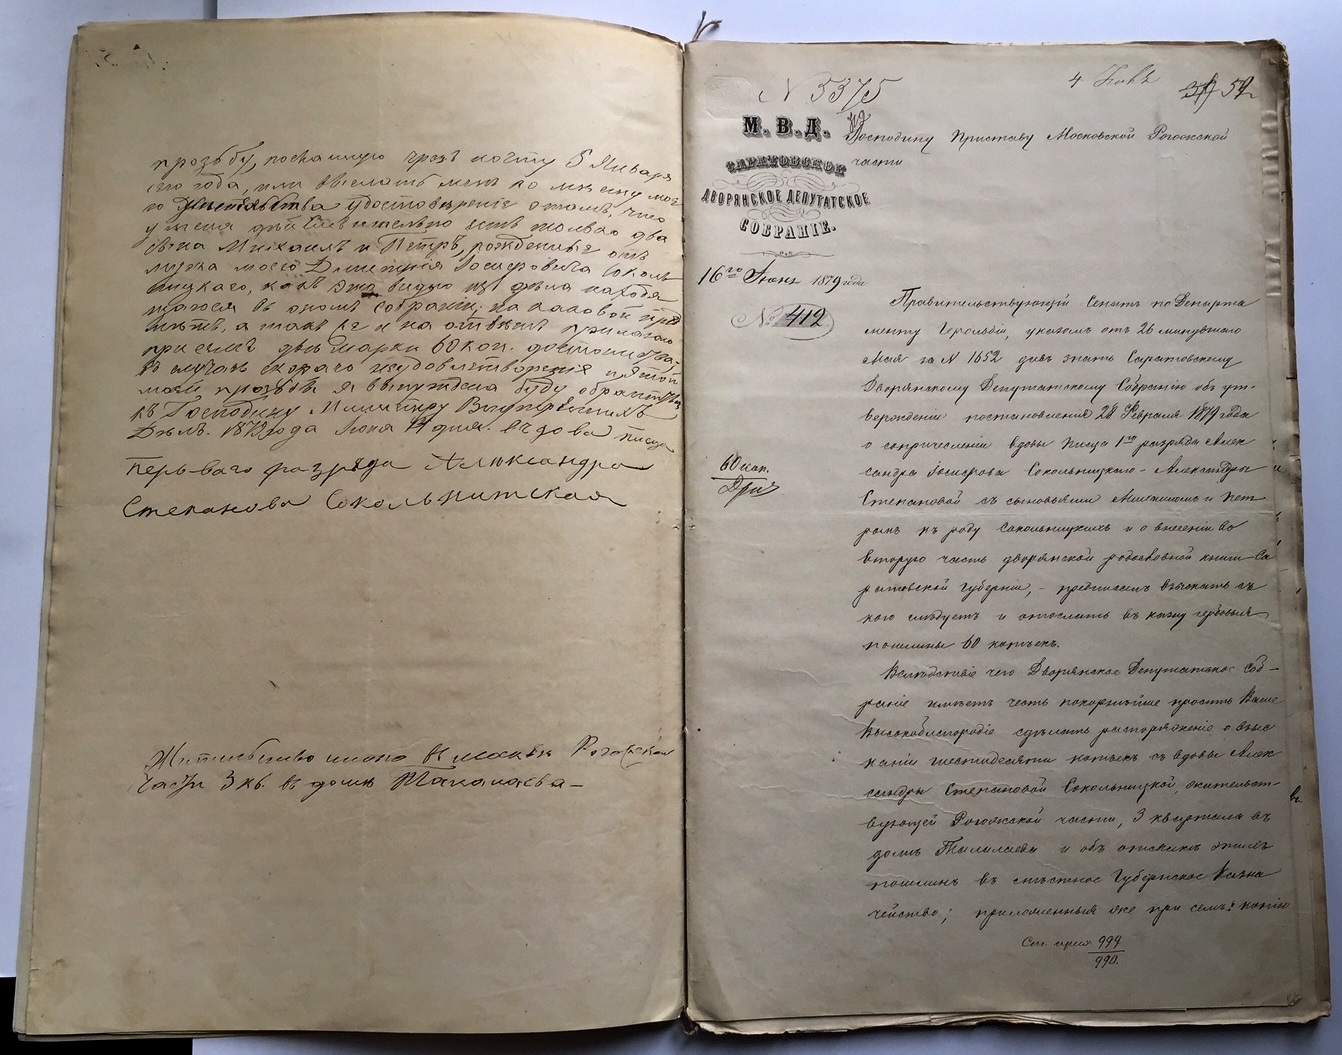 прозьбу, посланную чрезъ почту 5 Января
сего года, или выслать мне по месту моего
жительства удостоверение о томъ, что
у меня действительно есть только два
сына Михаилъ и Петръ, рожденные отъ
мужа моего Осиповича Соколь
ницкаго, какъ это видно изъ дела находя
щагося въ ономъ собрании; на каковой
а такъ же и на ответъ прилагаю
при семъ две марки 60 коп. достоинства
въ случае неудовлетворения
моей прозьбы я вынуждена буду обратиться
къ Господину Министру Внутреннихъ
Делъ. 1879 года Июня дня. вдова писца
перваго разряда Александра
Степанова Сокольницкая
Жительство имею Рогожской
части 3 кв. въ доме
N 5375
4
54
М. В. Д.
САРАТОВСКОЕ
ДВОРЯНСКОЕ ДЕПУТАТСКОЕ
СОБРАНІЕ.
16го Июня 1879 года
№ 412
60 коп.
Господину Приставу Московской Рогожской
части
Правительствующій Сенатъ по Департа
менту Герольдіи, указомъ отъ 26 минувшаго
Мая за N 1652 далъ знать Саратовскому
Дворянскому Депутатскому Собранію объ ут-
вержденіи постановленія 28 Февраля 1879 года
о сопричисленіи вдовы писца 1го разряда Алек
сандра Осипова Сокольницкаго - Александры
Степановой съ сыновьями Михаиломъ и Пет
ромъ къ роду Сокольницкихъ и о внесеніи во
вторую часть дворянской родословной книги Са
ратовской Губерніи, - предписалъ взыскать съ
кого слѣдуетъ и отослать въ казну гербовыя
пошлины 60 копѣекъ.
Вслѣдствіе чего Дворянское Депутатское Соб-
раніе имѣетъ честь покорнѣйше просить Ваше
Высокоблагородіе сдѣлать распоряженіе о взыс
каніи шестидесяти копѣекъ съ вдовы Алек
сандры Степановой Сокольницкой, жительст-
вующей Рогожской части, 3 квартала въ
домѣ и объ отсылкѣ этихъ
пошлинъ въ мѣстное Губернское Казна
чейство; приложенный же при семъ копію
994
990.